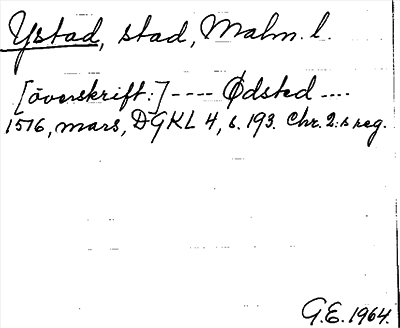 Ystad, stad, Malm. l.
[överskrift:] ---- Ødsted ----
1516, mars, DGKL 4, s. 193. Chr. 2:s reg.
G.E. 1964.